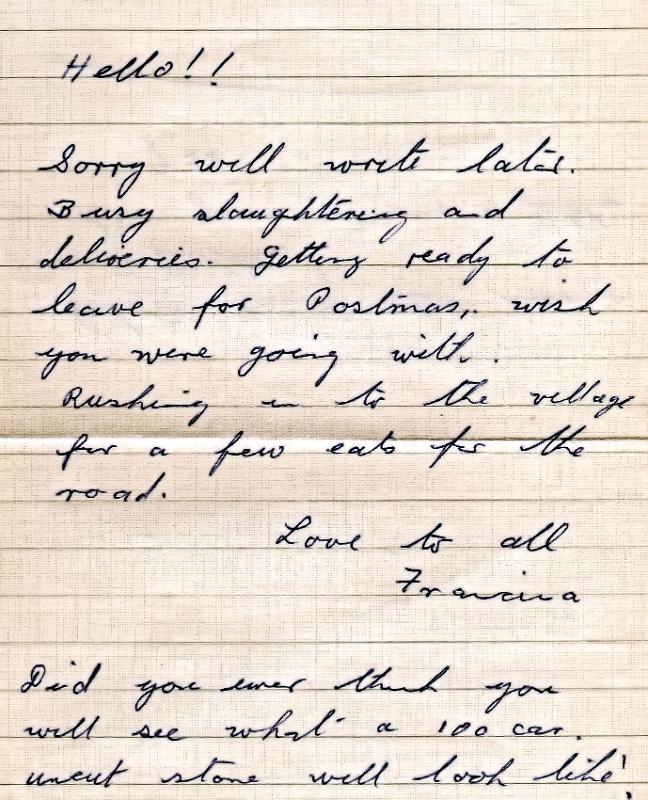 Hello!!
Sorry will write later.
Busy slaughtering and
deliveries. Getting ready to
leave for Postmas, wish
you were going with.
Rushing in to the village
for a few eats for the
road.
Love to all
Francina
Did you ever think you
will see what a 100 car.
uncut stone will look like!